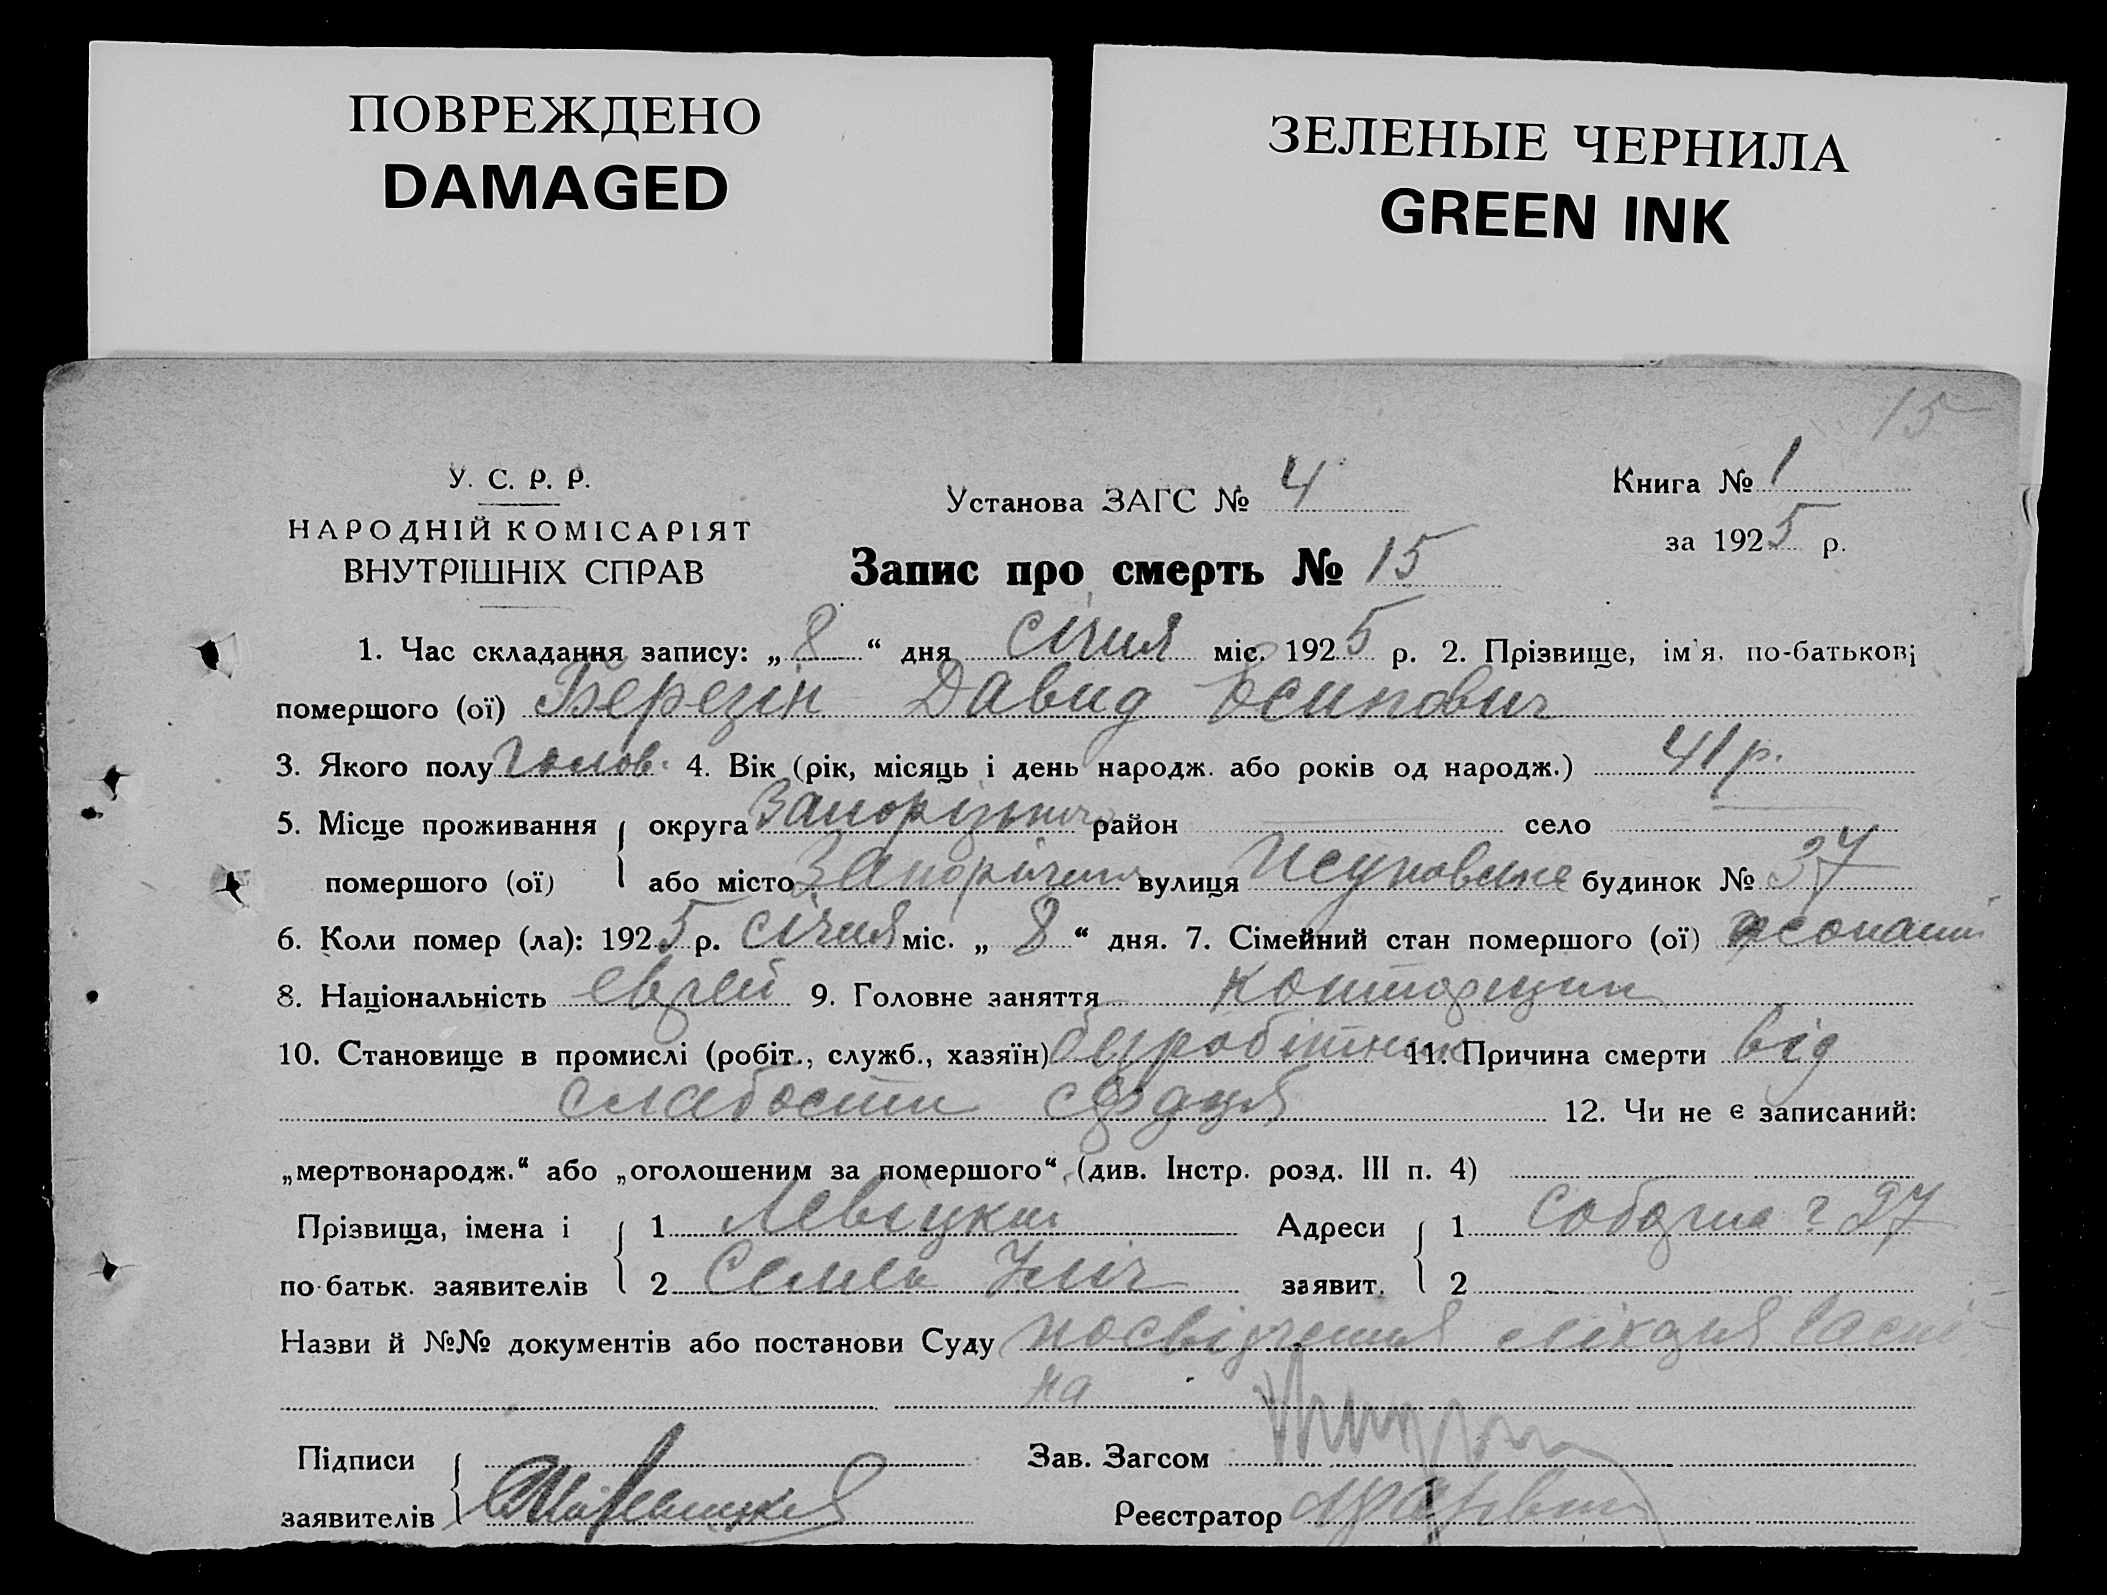 ПОВРЕЖДЕНО
DAMAGED
ЗЕЛЕНЫЕ ЧЕРНИЛА
GREEN INK
15
У. С. Р. Р.
НАРОДНІЙ КОМІСАРІЯТ
ВНУТРІШНІХ СПРАВ
Установа ЗАГС № 4
Книга № 1
за 1925 р.
Запис про смерть № 15
1. Час складання запису: „8“ дня січня міс. 1925 р. 2. Прізвище, ім'я, по-батькові
помершого (ої) Березін Давид Осипович
3. Якого полу чолов. 4. Вік (рік, місяць і день народж. або років од народж.) 41 р.
5. Місце проживання округа Запорізька район село
помершого (ої) або місто Запоріжжя вулиця будинок № 37
6. Коли помер (ла): 1925 р. січня міс. „8“ дня. 7. Сімейний стан помершого (ої) жонатий
8. Національність еврей 9. Головне заняття конторщик
10. Становище в промислі (робіт., служб., хазяїн) безробітний 11. Причина смерти від
слабости сердця 12. Чи не є записаний:
„мертвонародж.“ або „оголошеним за помершого“ (див. Інстр. розд. III п. 4)
Прізвища, імена і 1 Левіцкий Адреси 1 Соборна 27
по-батьк. заявителів 2 Семен Ілліч заявит. 2
Назви й №№ документів або постанови Суду посвідчення лікаря
на
Підписи Зав. Загсом
заявителів Реєстратор